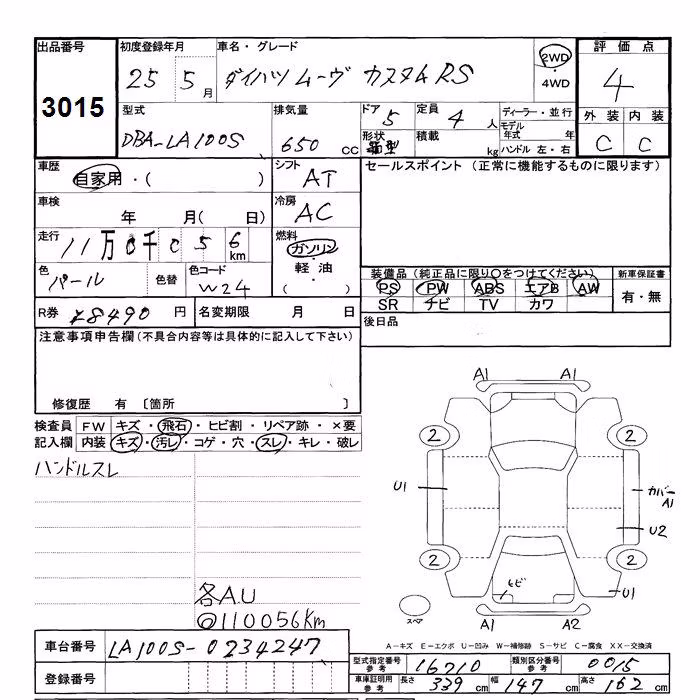 出品番号 初度登録年月 車名・グレード 評価点
3015 25 5月 ダイハツ ムーヴ カスタム RS 2WD・4WD 4
型式 排気量 ドア 5 定員 4人 ディーラー・並行 外装 内装
DBA-LA100S 650cc 形状 箱型 積載 kg モデル年式 年 ハンドル 左・右 C C
車歴 自家用・( ) シフト AT セールスポイント (正常に機能するものに限ります)
車検 年 月( 日) 冷房 AC
走行 11万0千056km 燃料 ガソリン・軽油・( )
色 パール 色替 色コード W24 装備品 (純正品に限り○をつけてください) 新車保証書
PS PW ABS エアB AW 有・無
SR ナビ TV カワ
R券 ¥8490円 名変期限 月 日 後日品
注意事項申告欄(不具合内容等は具体的に記入して下さい)
修復歴 有 〔箇所 〕
検査員 FW キズ・飛石・ヒビ割・リペア跡・×要
記入欄 内装 キズ・汚レ・コゲ・穴・スレ・キレ・破レ
ハンドルスレ
各A.U
◎110056Km
A1 A1
2 2
U1 カバーA1
U2
2 2
ヒビ U1
スペア A1 A2
A-キズ E-エクボ U-凹み W-補修跡 S-サビ C-腐食 XX-交換済
車台番号 LA100S-0234247 型式指定番号 参考 16710 類別区分番号 参考 0015
登録番号 車庫証明用 参考 長さ 339cm 幅 147cm 高さ 162cm